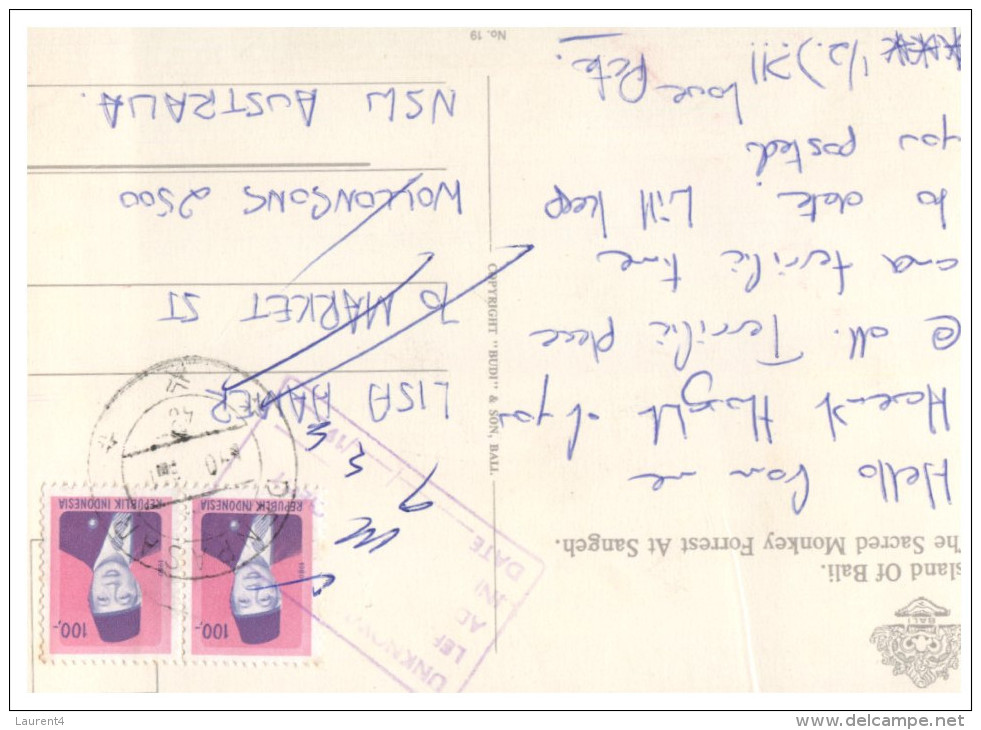 Island Of Bali.
The Sacred Monkey Forrest At Sangeh.
Hello from me
Haven't thought of you
@ all. Terrific place
and terrific time
to date. Will keep
you posted.
1/2.)?!!
love Pete.
No. 19
COPYRIGHT "BUDI" & SON, BALI
BALI
100,-
REPUBLIK INDONESIA
100,-
REPUBLIK INDONESIA
UNKNOWN
LEF
AD
INI
DATE
LISA HAMMER
70 MARKET ST
WOLLONGONG 2500
NSW AUSTRALIA.
Laurent4
www.delcampe.net